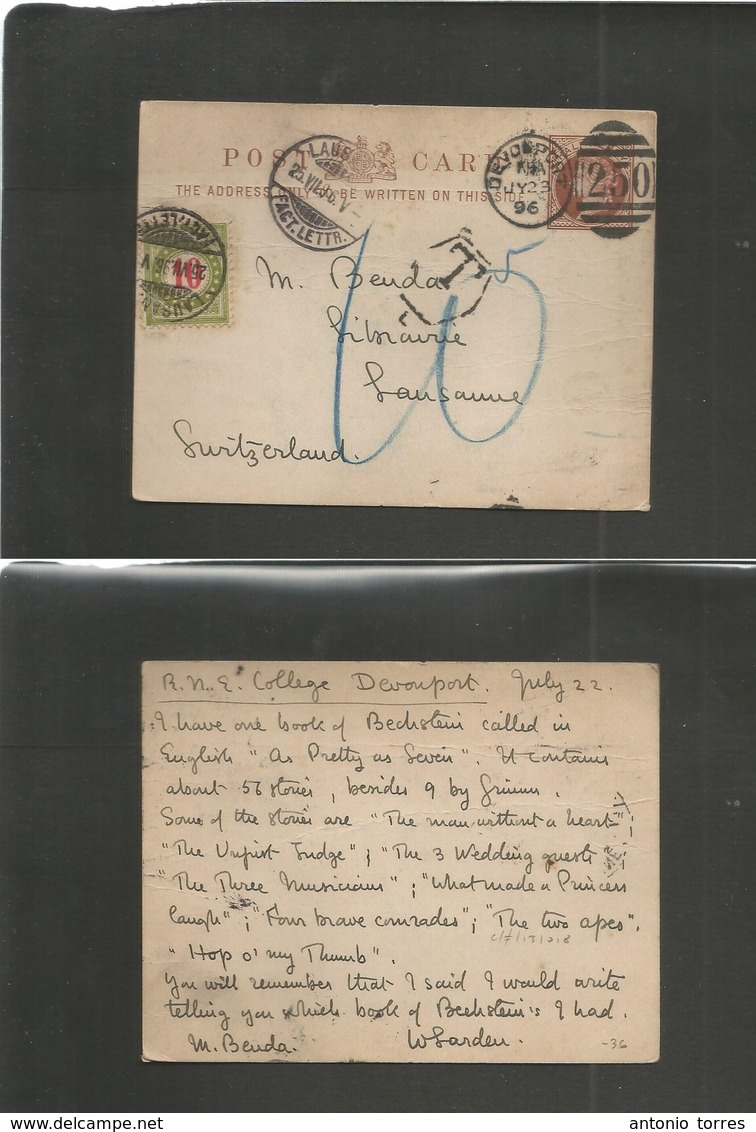 POST CARD
THE ADDRESS ONLY TO BE WRITTEN ON THIS SIDE
LAUS
25.VII.96.V
FACT. LETTR.
DEVONPORT
JY 23
96
250
10
LAUSAN
T
L
15
M. Benda
Librairie
Lausanne
Switzerland.
R.N.E. College Devonport. July 22.
I have one book of Bechstein called in
English "As Pretty as Seven". It contains
about 56 stories, besides 9 by Grimm.
Some of the stories are "The man without a heart";
"The Unjust Judge"; "The 3 Wedding guests";
"The Three Musicians"; "What made a Princess
laugh"; "Four brave comrades"; "The two apes".
"Hop o' my Thumb".
You will remember that I said I would write
telling you which book of Bechstein's I had.
M. Benda. WLarden.
-36
antonio torres